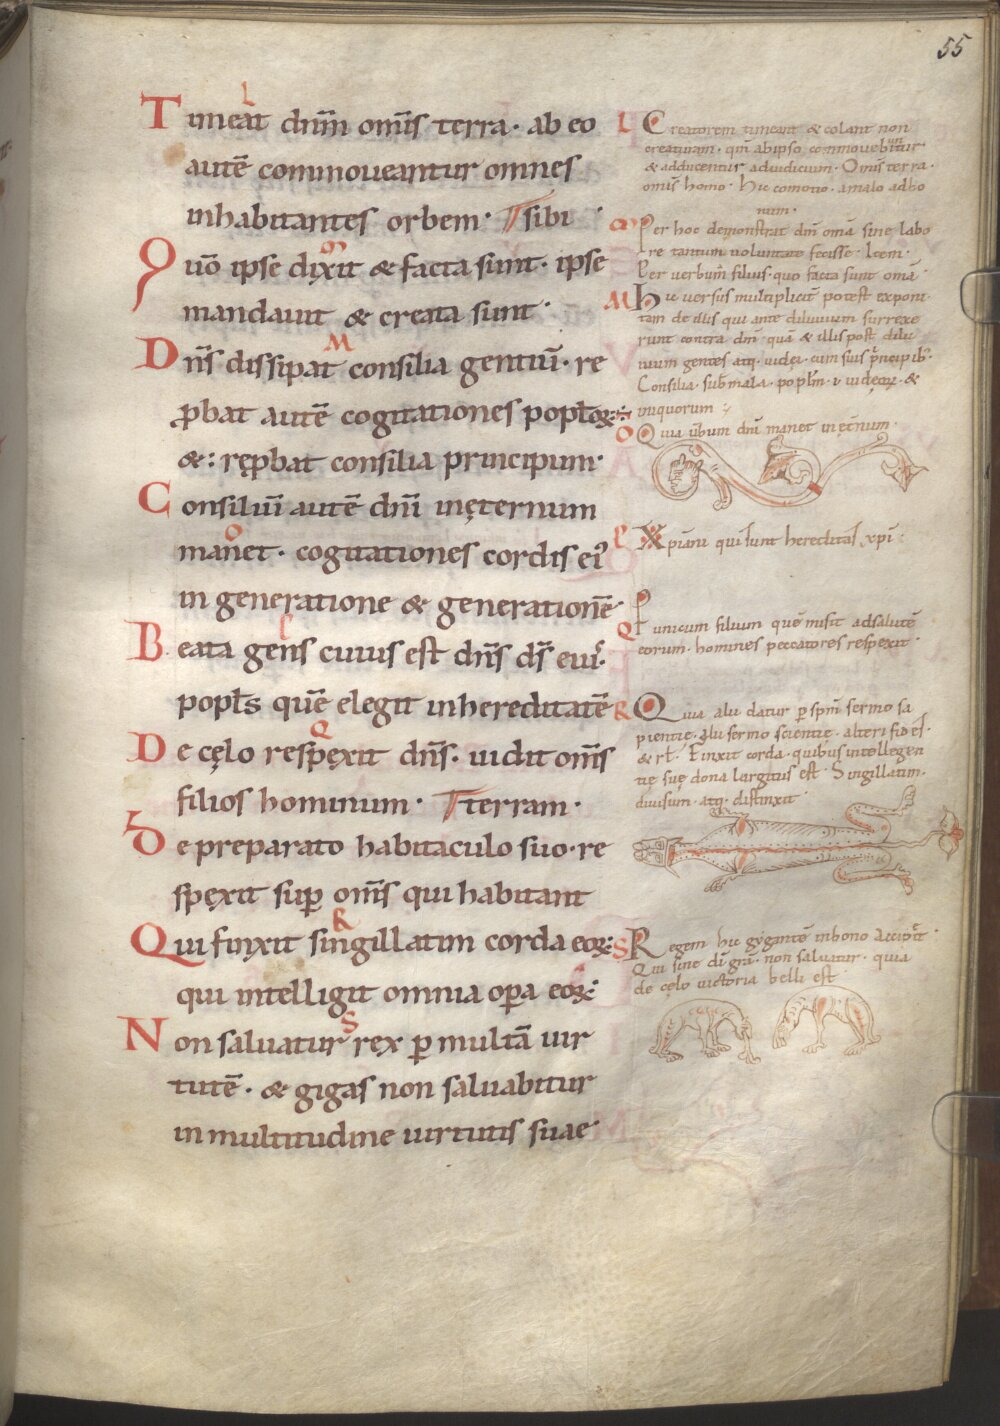 55
Timeat dnm̄ omīs terra· ab eo
autē commoveantur omnes
inhabitantes orbem· sibi
Quō ipse dixit & facta sunt· ipse
mandavit & creata sunt·
Dn̄s dissipat consilia gentiū· re
ꝓbat autē cogitationes popl̄oꝝ·
&: rep̱bat consilia principum·
Consiliū autē dnī inęternum
manet· cogitationes cordis ei᾽
in generatione & generationē
Beata gens cuius est dn̄s ds̄ eius·
popl̄s quē elegit inhereditatē
De cęlo respęxit dn̄s· vidit omīs
filios hominum· terram·
De preparato habitaculo suo· re
spęxit suꝑ omīs qui habitant
Qui finxit singillatim corda eoꝝ:
qui intelligit omnia oꝑa eoꝝ·
Non salvatur rex ꝑ multā vir
tutē· & gigas non salvabitur
in multitudine virtutis suae·
L Creatorem timeant & colant non
creaturam· qm̄ abipso commovebitur
& adducentur adiudicium· Omīs terra·
omīs homo· hic comotio· amalo adbo
num·
M Per hoc demonstrat dnm̄ omā sine labo
re tantum voluntate fecisse· Item·
Per verbum filius· quo facta sunt omā·
M Hic versus multiplicit̄ potest exponi·
tam de illis qui ante diluvium surrexe
runt contra dnm̄· quā & illis post dilu
vium gentes atq· iudei· cum suis prīncipib·
Consilia· sub mala· popl̄m· i· iudęoꝝ· &
iniquorum
O Quia ūbum dnī manet inęt̄num·
P Xpiani qui sunt hereditas xpī:
Q P unicum filium quē misit adsalutē
eorum· homines peccatores respexit·
R Quia alii datur ꝑ spm̄ sermo sa
pientię· alii sermo scientię· alteri fides·
& rl̄· Finxit corda· quibus intellegen
tię suę dona largitus est· Singillatim·
divisum· atq· distinxit·
S Regem hic gygantē inbono accipit·
Qui sine dī grā· non salvatur· quia
de cęlo victoria belli est·